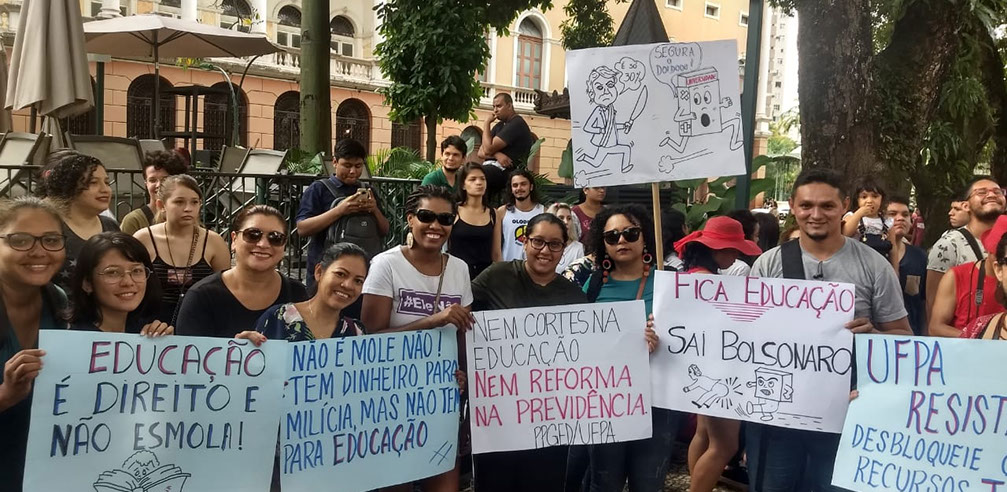 É SÓ
30%
SEGURA
O
DOIDOOO!
UNIVERSIDADE
#EleNÃO
EDUCAÇÃO
É DIREITO E
NÃO ESMOLA!
NÃO É MOLE NÃO!
TEM DINHEIRO PARA
MILÍCIA, MAS NÃO TEM
PARA EDUCAÇÃO
NEM CORTES NA
EDUCAÇÃO
NEM REFORMA
NA PREVIDÊNCIA.
PPGED/UFPA
FICA EDUCAÇÃO
SAI BOLSONARO
UFPA
RESIST
DESBLOQUEIE
RECURSOS